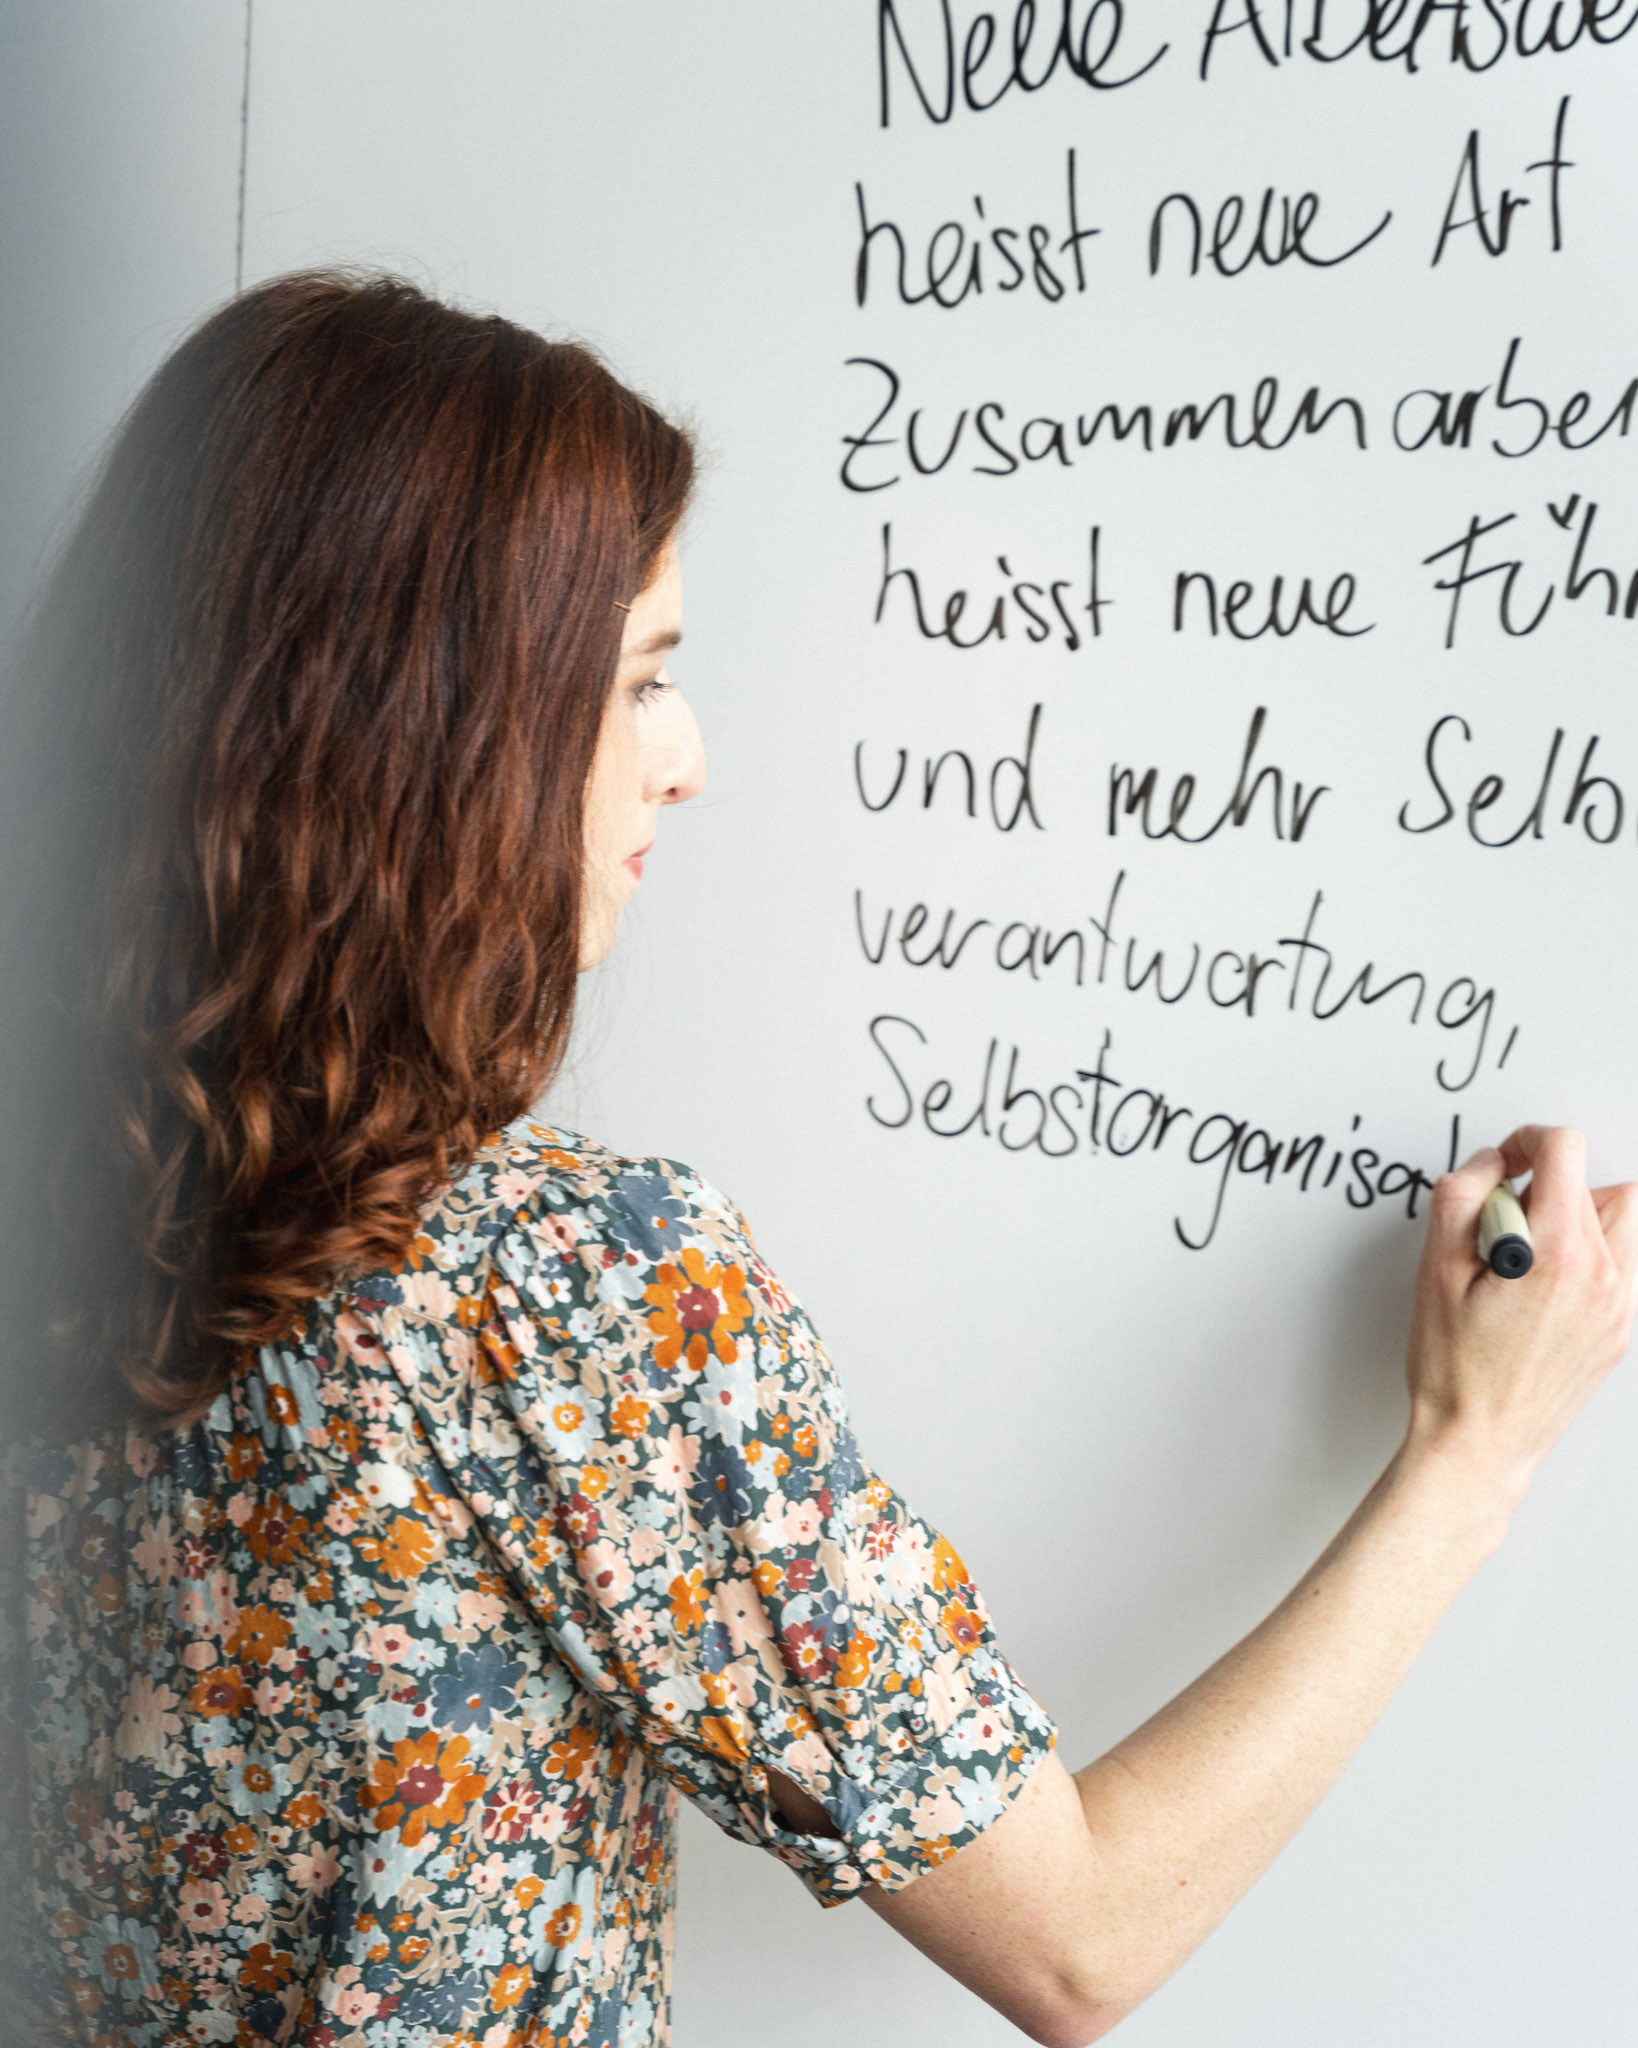 Neue Arbeitswe
heisst neue Art
Zusammenarbei
heisst neue Führ
und mehr Selbs
verantwortung,
Selbstorganisat